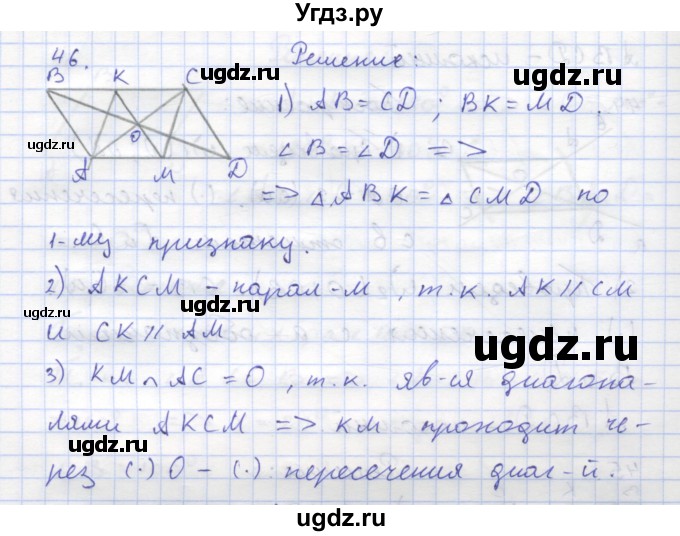 Угдз.ру
46.
Решение:
B K C
O
A M D
1) AB = CD ; BK = MD .
∠B = ∠D =>
=> △ABK = △CMD по
1-му признаку.
2) AKCM – парал-м, т.к. AK // CM
и CK // AM
3) KM ∩ AC = O , т.к. яв-ся диагона-
лями AKCM => KM проходит че-
рез (·) O – (·) пересечения диаг-й.
ugdz.ru
ugdz.ru
ugdz.ru
ugdz.ru
ugdz.ru
ugdz.ru
ugdz.ru
ugdz.ru
ugdz.ru